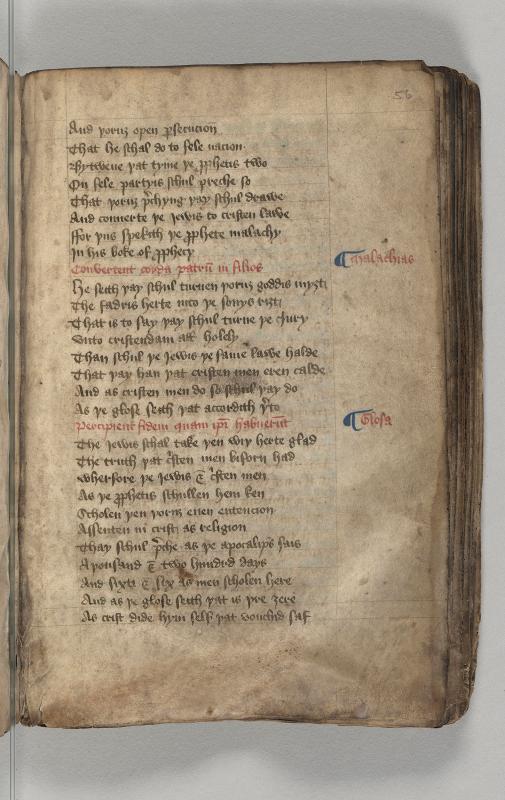 56
And þoruȝ open ꝑsecucion̄
That he schal do to fele nacion
Bytwene þat tyme þe ꝓphetis two
On fele partyis schul preche so
That þoruȝ p̓chyng þay schul drawe
And conuerte þe iewis to cristen lawe
ffor þus spekith þe ꝓphete malachy
In his boke of ꝓphecy
Conuertent corda patrū in filios
Malachias
He seith þay schul turnen þoruȝ goddis myȝt
The fadris herte into þe sonys riȝt
That is to say þay schul turne þe Jury
Vnto cristendam al holely
Than schul þe iewis þe same lawe halde
That þay han þat cristen men even calde
And as cristen men do so schul þay do
As þe glose seith þat accordith þ̓to
Percipient fidem quam ip̄i habuerūt
Glosa
The iewis schal take þen wiþ herte glad
The truth þat c̓sten men biforn had
Wherfore þe iewis & c̓sten men
As þe ꝓphetis schullen hem ken
Scholen þen þoruȝ euen entencion
Assenten in crist as religion
Thay schul p̓che as þe apocalips sais
A þousand & two hundrid days
And sixti & six as men scholen here
And as þe glose seith þat is þre ȝere
As crist dide hym self þat vouchid saf